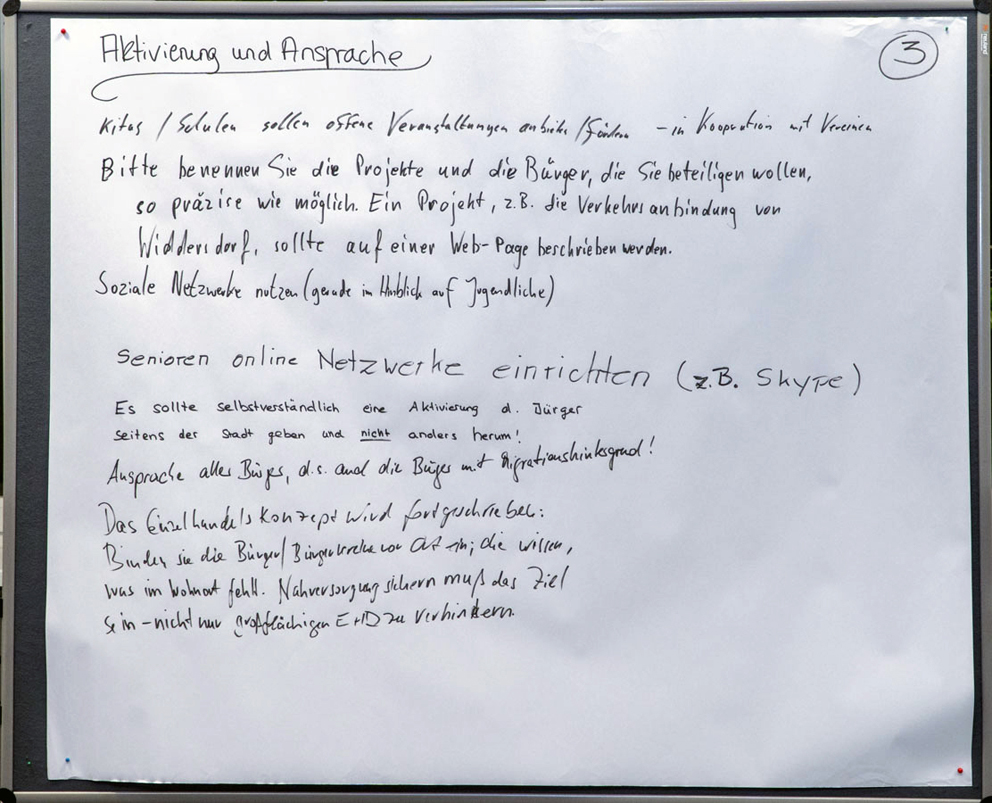 Aktivierung und Ansprache
3
Kitas / Schulen sollen offene Veranstaltungen anbieten / fördern - in Kooperation mit Vereinen
Bitte benennen Sie die Projekte und die Bürger, die Sie beteiligen wollen,
so präzise wie möglich. Ein Projekt, z.B. die Verkehrsanbindung von
Widdersdorf, sollte auf einer Web-Page beschrieben werden.
Soziale Netzwerke nutzen (gerade im Hinblick auf Jugendliche)
Senioren online Netzwerke einrichten (z.B. Skype)
Es sollte selbstverständlich eine Aktivierung d. Bürger
seitens der Stadt geben und nicht anders herum!
Ansprache aller Bürger, d.s. auch die Bürger mit Migrationshintergrund!
Das Einzelhandelskonzept wird fortgeschrieben:
Binden sie die Bürger/ Bürgervereine vor Ort ein; die wissen,
was im Wohnort fehlt. Nahversorgung sichern muß das Ziel
sein - nicht nur großflächigen EHD zu verhindern.